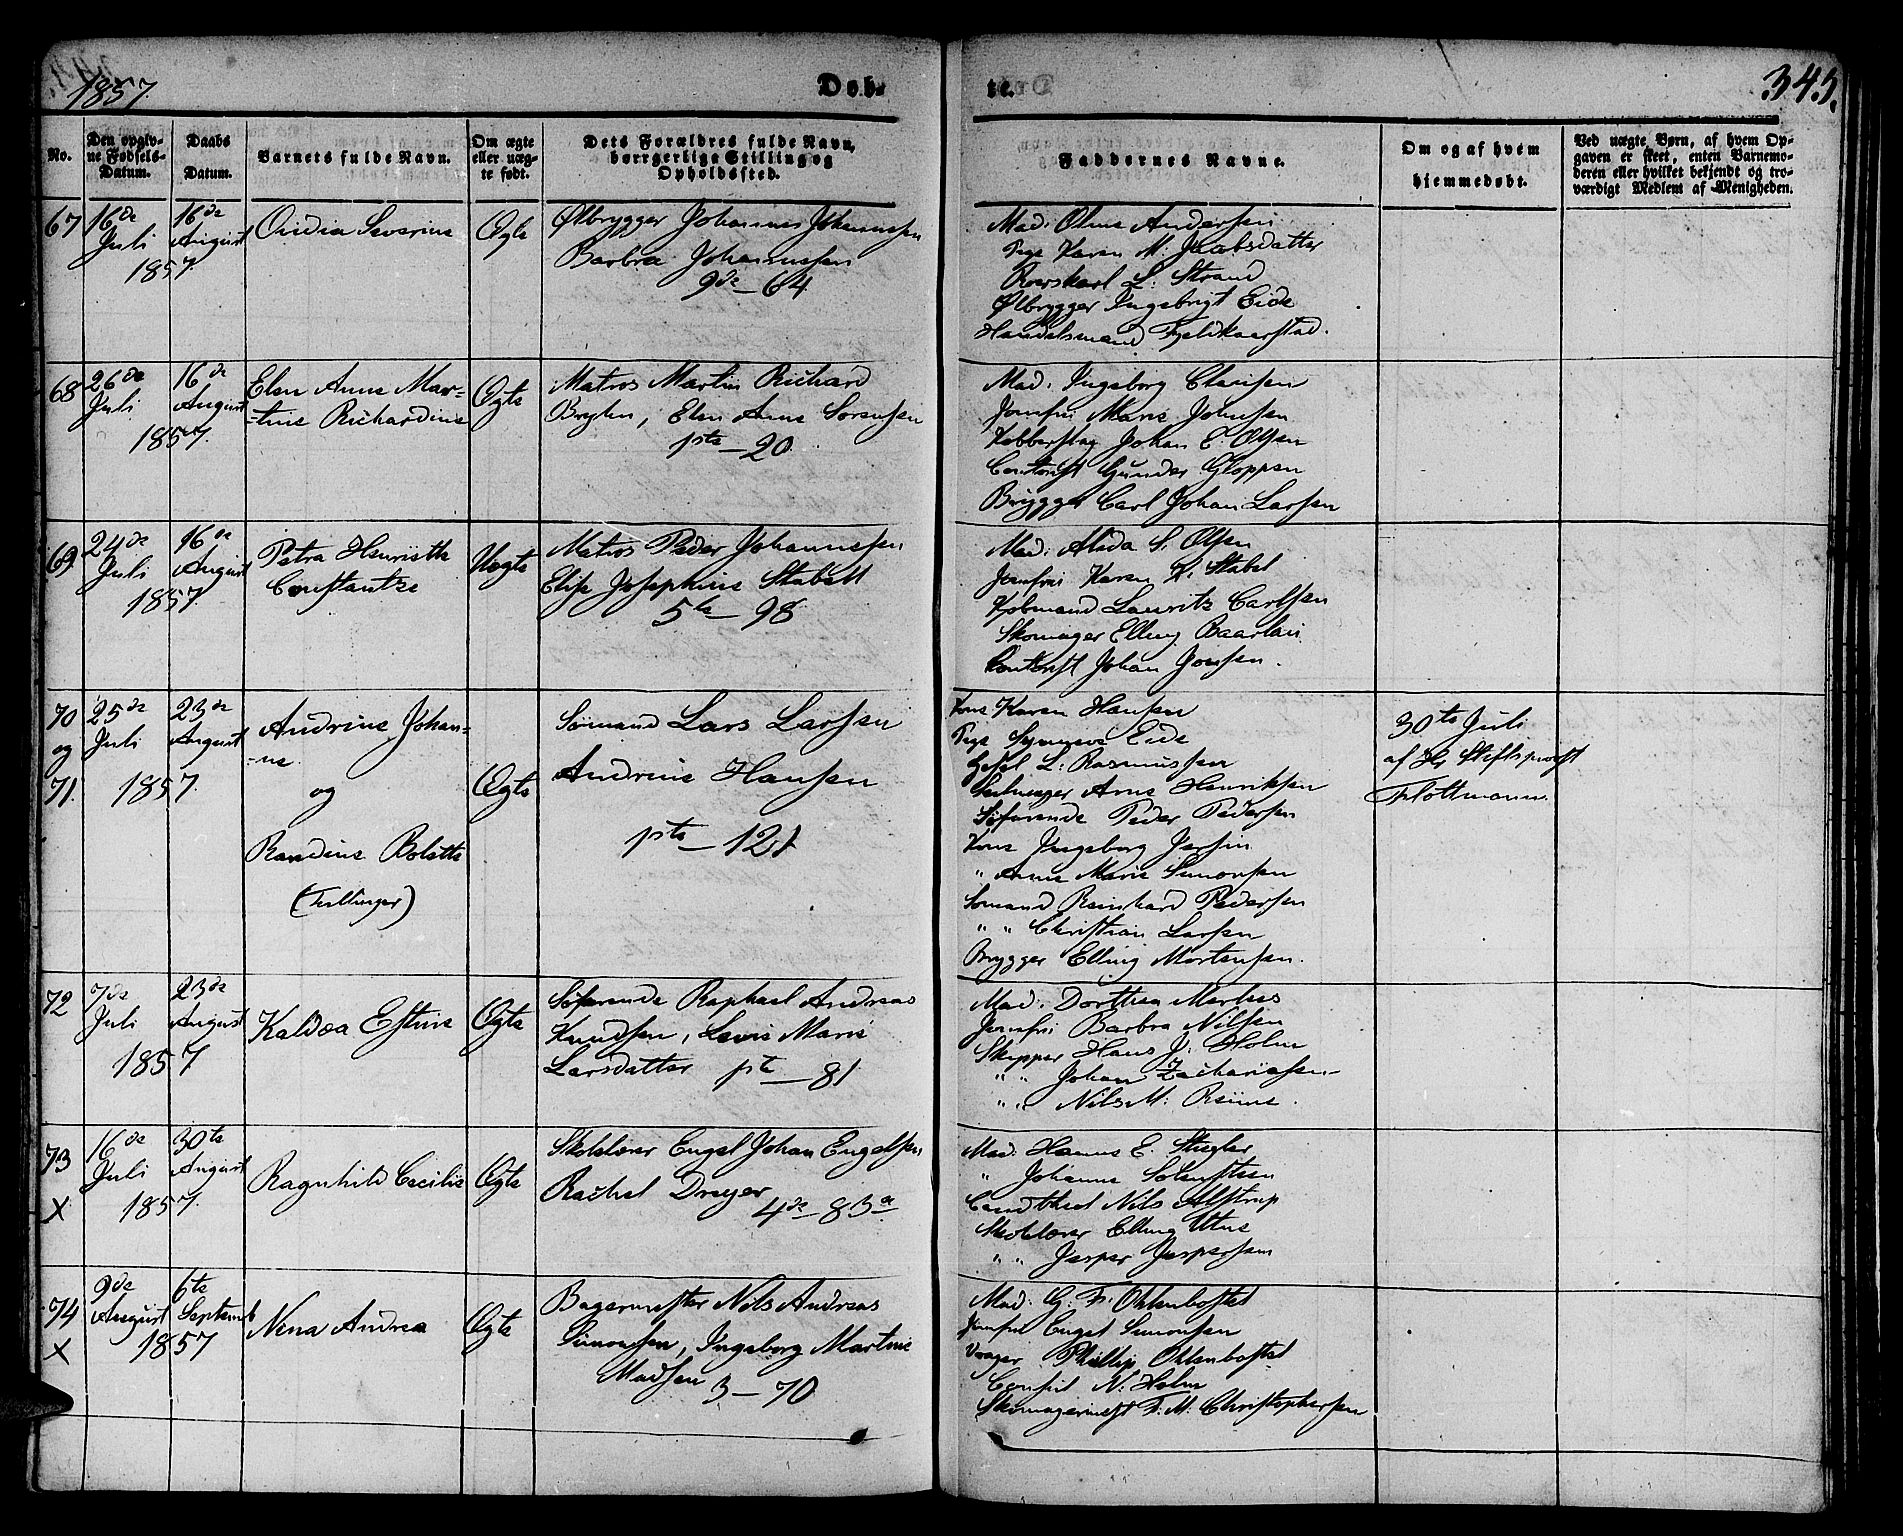 1857.
Døb-
te.
345.
No.
Den opgiv-
ne Fødsels-
Datum.
Daabs
Datum.
Barnets fulde Navn.
Om ægte
eller uæg-
te født.
Dets Forældres fulde Navn,
borgerlige Stilling og
Opholdssted.
Faddernes Navne.
Om og af hvem
hjemmedøbt.
Ved uægte Børn, af hvem Op-
gaven er skeet, enten Barnemo-
deren eller hvilket bekjendt og tro-
værdigt Medlem af Menigheden.
67
16de
Juli
16de
August
1857.
Ovidia Severine
Ægte
Ølbrygger Johannes Johannessen
Barbra Johannessen
9de – 64
Mad. Oline Andersen
Pige Karen M. Jacobsdatter
Roerskarl L. Strand
Ølbrygger Ingebrigt Eide
Handelsmand Fjeldkaarstad.
68
26de
Juli
16de
August
1857.
Elen Anne Mar-
-tine Richardine
Ægte
Matros Martin Richard
Elen Anne Sørensen
1ste – 20.
Mad. Ingeborg Clausen
Jomfru Marie Johnsen
Kobberslag Johan E. Olsen
Contorist Gunder Gloppen
Brygger Carl Johan Larsen
69
24de
Juli
16de
August
1857.
Petra Henriette
Constantse
Uægte
Matros Peder Johannessen
Elise Josephine Stabell
5te – 98
Mad. Alida S. Olsen
Jomfru Karen K. Stabel
Kjøbmand Lauritz Carlsen
Skomager Elling
Contorist Johan Jonsen.
70
og
71.
25de
Juli
23de
August
1857.
Andrine Johan-
-ne.
og
Randine Bolette
(Tvillinger)
Ægte
Sømand Lars Larsen
Andrine Hansen
1ste – 121
Kone Karen Hansen
Pige Synneve Eide
Gesel L. Rasmussen
Seilmager Arne Henriksen
Søfarende Peder Pedersen
Kone Ingeborg
" Anne Marie Simonsen
Sømand Reinhard Pedersen
" " Christian Larsen
Brygger Elling Mortensen.
30te Juli
af Hr Stiftsprovst
Flottmann.
72
7de
Juli
23de
August
1857
Kaldea Estine
Ægte
Søfarende Raphael Andreas
Knudsen, Lovise Marie
Larsdatter 1ste – 81
Mad. Dorthea
Jomfru Barbra Nilsen
Skipper Hans J. Holm
" " Johan Zachariasen
" " Nils M.
73
X
16de
Juli
30te
August
1857.
Ragnhild Cecilie
Ægte
Skolelærer Engel Johan Engelsen
Rachel Dreyer
4de – 83a
Mad. Hanne E. Stegler
" Johanne
Cand theol Nils Alstrup
Skolelærer Elling Utne
" " Jesper Jespersen
74
X
9de
August
6te
Septemb
1857
Nina Andrea
Ægte
Bagermester Nils Andreas
Simonsen, Ingeborg Martine
Madsen 3 – 70
Mad. G. F. Ohlenbostel
Jomfru Engel Simonsen
Vrager Phillip Ohlenbostel
Consul N. Holm
Skomagermest F. M. Christophersen